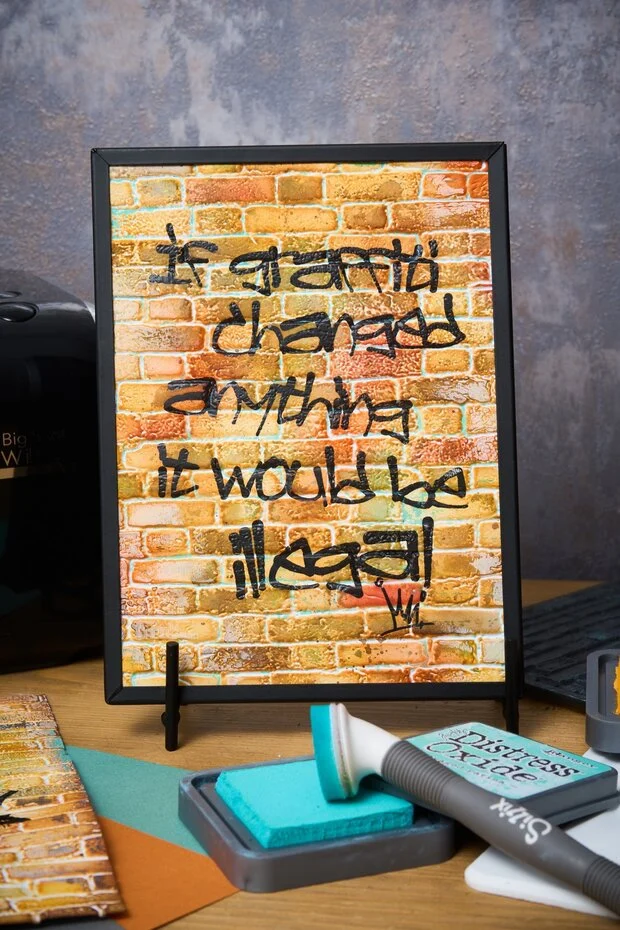 if graffiti
changed
anything
it would be
illegal
Big
Distress
Oxide
Sizzix